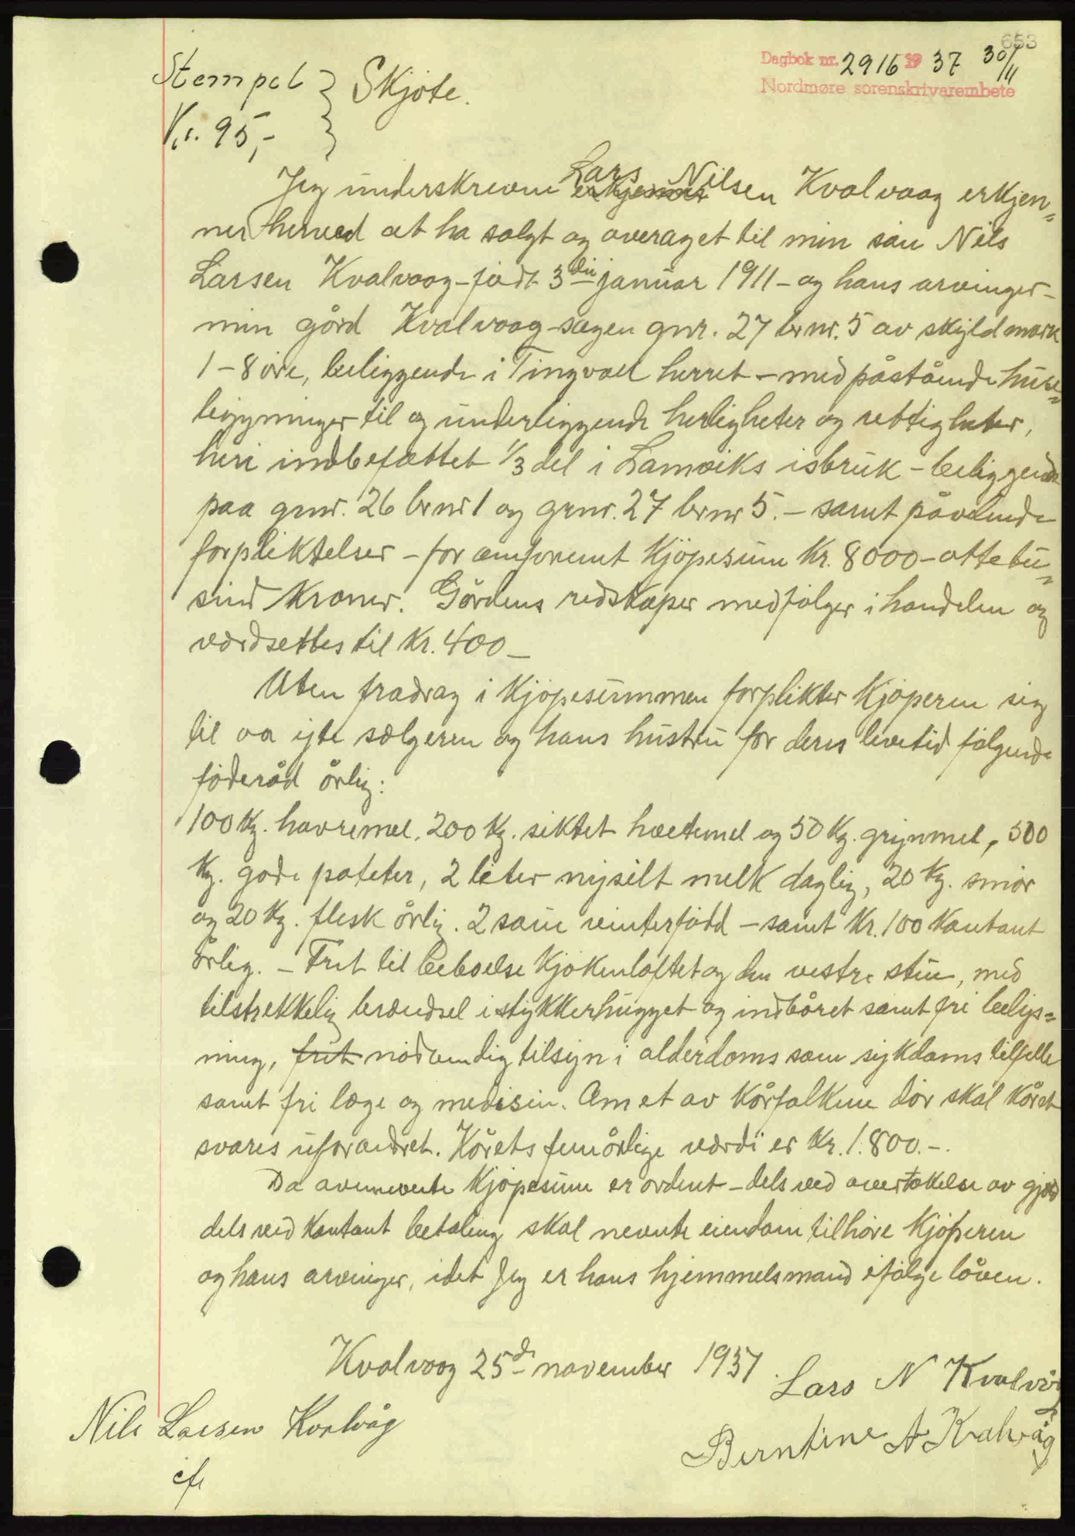 653
Dagbok nr. 2916 19 37 30/11
Nordmøre sorenskrivarembete
Stempel } Skjøte.
Kr. 95,-
Jeg underskrevne Lars Nilsen Kvalvaag erkjen-
ner herved at ha solgt og overaget til min søn Nils
Larsen Kvalvaag - født 3die januar 1911 - og hans arvinger -
min gård Kvalvaag-sagen gnr. 27 brnr. 5 av skyld mark
1 - 8 øre, beliggende i Tingvoll herret - med påstående huse-
bygninger til og underliggende herligheter og rettigheter,
heri indbefattet 1/3 del i Lamviks isbruk - beliggende
paa gnr. 26 brnr 1 og grnr. 27 brnr 5. - samt påvilende
forpliktelser - for omforenet Kjøpesum Kr. 8000 - ottetu-
sind Kroner. Gårdens redskaper medfølger i handelen og
værdsettes til Kr. 400 -
Uten fradrag i Kjøpesummen forplikter Kjøperen sig
til aa yte sælgeren og hans hustru for deres levetid følgende
føderåd årlig:
100 Kg. havremel, 200 Kg. siktet hvetemel og 50 Kg. grynmel, 500
Kg. gode poteter, 2 liter nysilt melk daglig, 20 Kg. smør
og 20 Kg. flesk årlig. 2 sau vinterfødd - samt Kr. 100 Kontant
årlig. - Frit til beboelse Kjøkenloftet og den vestre stue, med
tilstrekkelig brændsel istykkerhugget og indbåret samt fri belys-
ning, frit nødvendig tilsyn i alderdoms som sykdoms tilfelle
samt fri læge og medisin. Om et av Kårfolkene dør skal Kåret
svares uforandret. Kårets femårlige værdi er Kr. 1.800.-.
Da avennevnte Kjøpesum er ordent - dels ved overtakelse av gjeld
dels ved Kontant betaling skal nevnte eiendom tilhøre Kjøperen
og hans arvinger, idet Jeg er hans hjemmelsmand efølge låven.
Kvalvaag 25de november 1937.
Lars N Kvalvåg
Nils Larsen Kvalvåg
Berntine A Kvalvåg